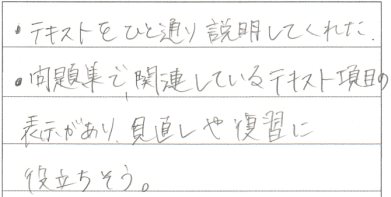 ・テキストをひと通り説明してくれた.
・問題集で,関連しているテキスト項目の
表示があり.見直しや復習に
役立ちそう。